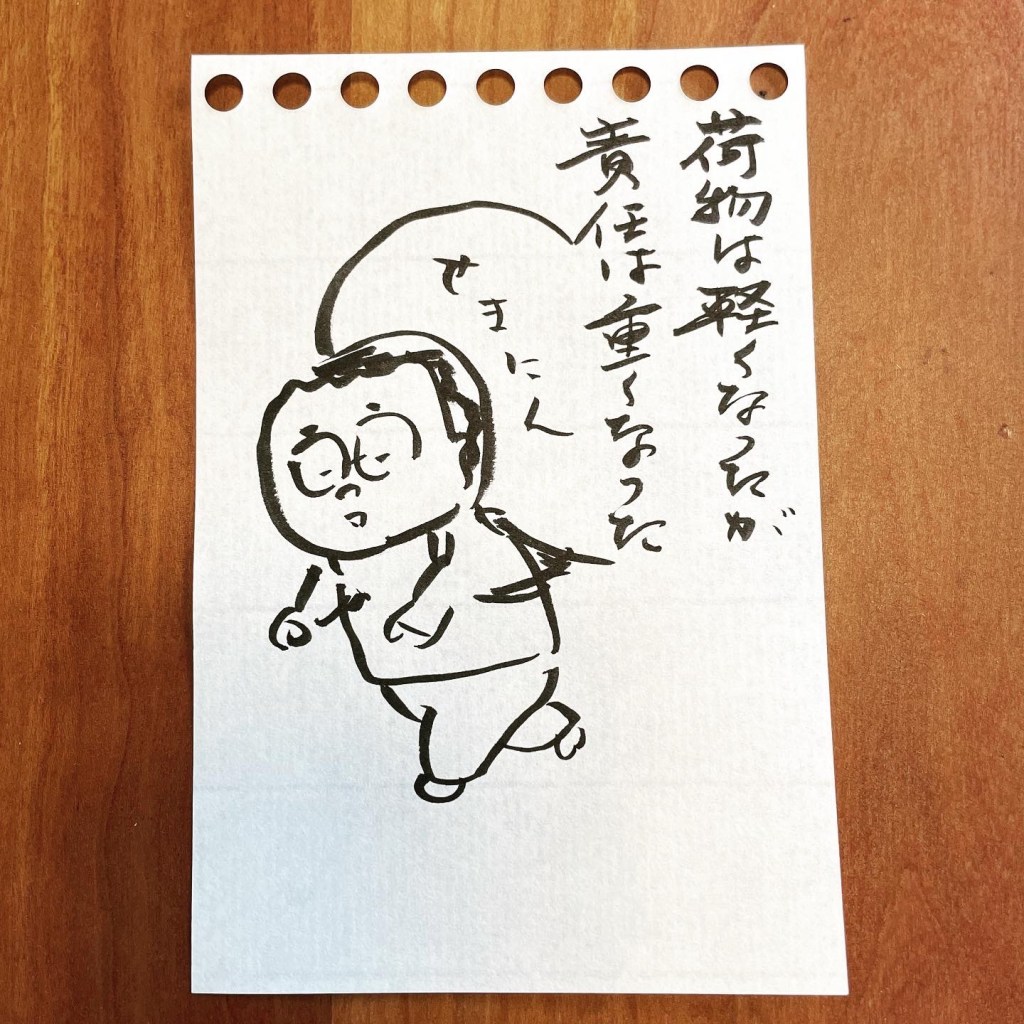 荷物は軽くなったが
責任は重くなった
せきにん